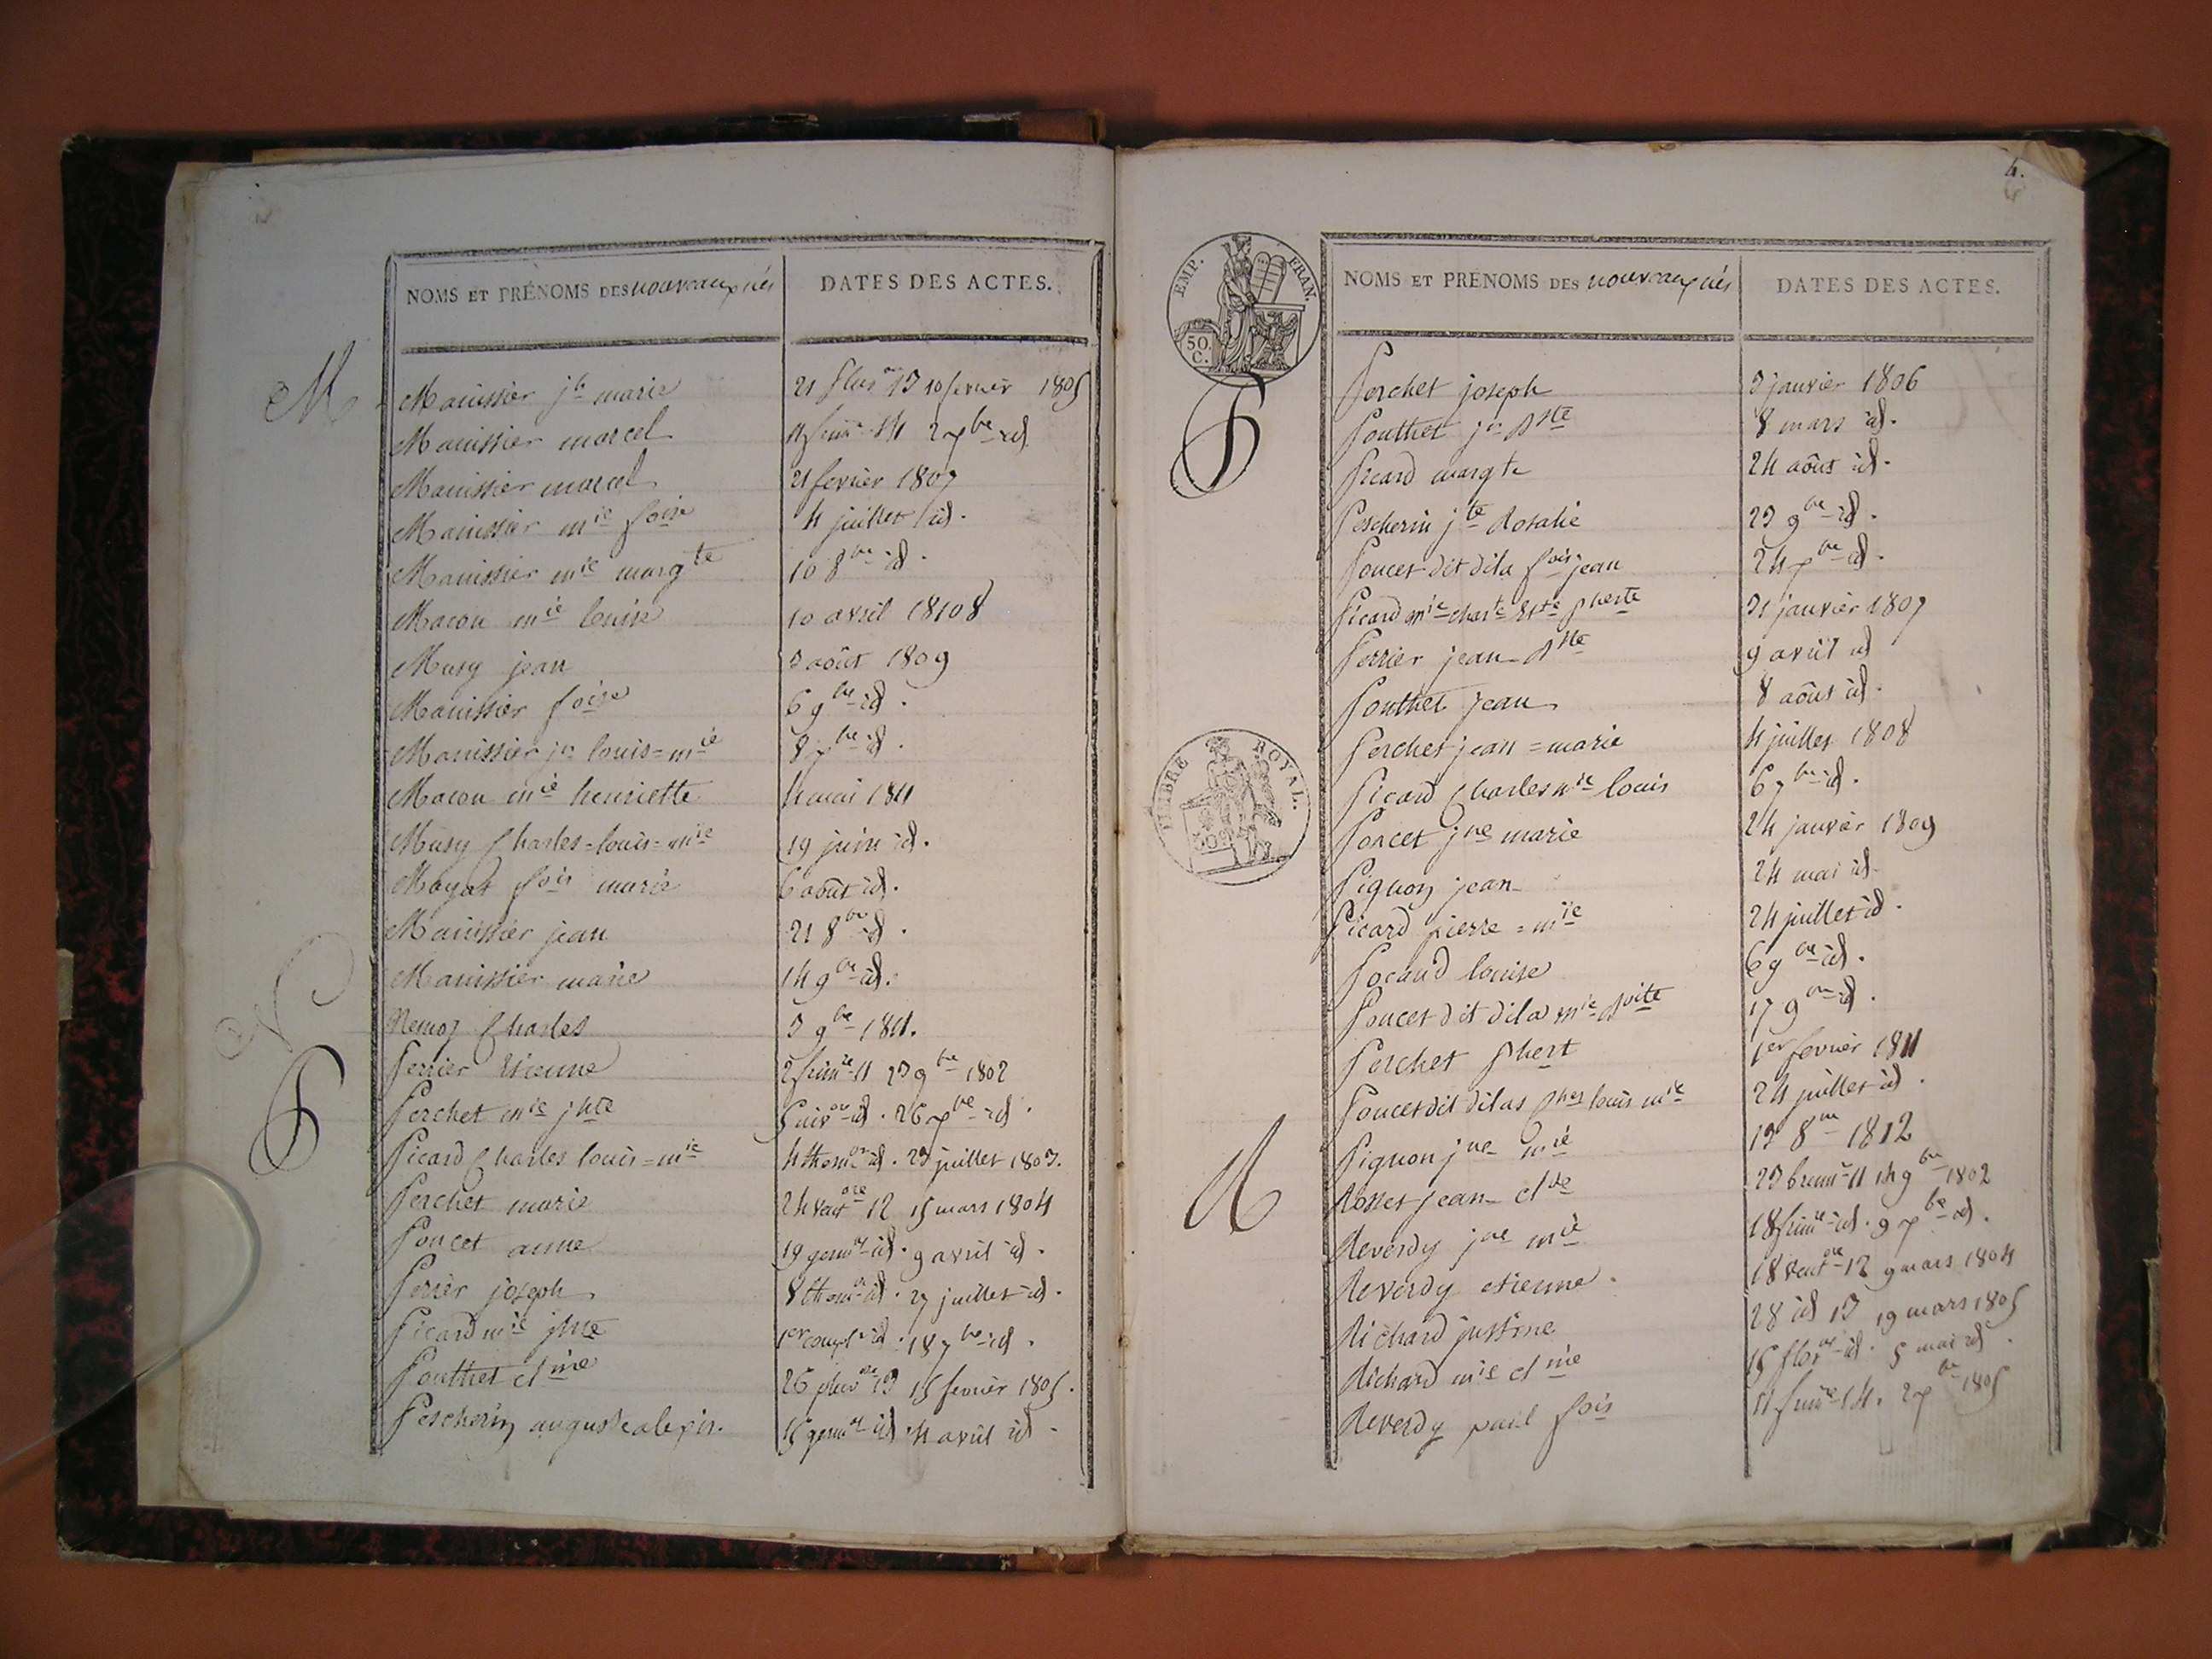 NOMS ET PRÉNOMS DES nouveaux nés DATES DES ACTES.
M
Manissier jh marie 21 pluse 13 10 fevrier 1805
Manissier marcel 11 frimre 14 2 xbre id
Manissier marcel 21 fevrier 1807
Manissier mie foise 4 juillet id.
Manissier mie margte 10 8bre id.
Macon mie louise 10 avril 18108
Musy jean 3 août 1809
Manissier foise 6 9bre id.
Manissier jn louis=mie 8 xbre id.
Macon mie henriette 4 mai 1811
Musy Charles=louis=mie 19 juin id.
Moyat fois marie 6 août id.
Manissier jean 21 8bre id.
Manissier marie 14 9bre id.
N
Nemoz Charles 3 9bre 1811.
P
Perrier Etienne 2 frimre 11 23 9bre 1802
Perchet mie jhte 5 nivose id. 26 xbre id.
Picard Charles louis=mie 4 thermor id. 23 juillet 1803.
Perchet marie 24 ventose 12 15 mars 1804
Poncet anne 19 germal id. 9 avril id.
Perier joseph 8 thermor id. 27 juillet id.
Picard mie jhte 1er compre id. 18 7bre id.
Pouthet clmie 26 pluvose 13 15 fevrier 1805.
Pescherin auguste alexis. 15 germal id 4 avril id.
4.
EMP. FRAN.
50. C.
NOMS ET PRÉNOMS DES nouveaux nés DATES DES ACTES.
P
Perchet joseph 3 janvier 1806
Pouthet jn Bste 8 mars id.
Picard margte 24 août id.
Pescherin jte Rosalie 23 9bre id.
Poncet dit dila fois jean 24 xbre id.
Picard mie charte pherte 31 janvier 1807
Perrier jean Bste 9 avril id
Pouthet jean 8 août id.
Perchet jean=marie 4 juillet 1808
Picard Charles mie louis 6 7bre id.
TIMBRE ROYAL.
50
Poncet jne marie 24 janvier 1809
Pignon jean 24 mai id.
Picard pierre=mie 24 juillet id.
Pocaud louise 6 9bre id.
Poncet dit dila mie Boite 17 9bre id.
Perchet phert 1er fevrier 1811
Poncet dit dilas louis mie 24 juillet id.
Pignon jne mie 13 8bre 1812
R
Rosset jean clde 23 brumre 11 14 9bre 1802
Reverdy jne mie 18 frimre id. 9 xbre id.
Reverdy etienne. 18 ventose 12 9 mars 1804
Richard justine 28 id 13 19 mars 1805
Richard mie clmie 15 floral id. 5 mai id.
Reverdy paul fois 11 frimre 14. 2 xbre 1805